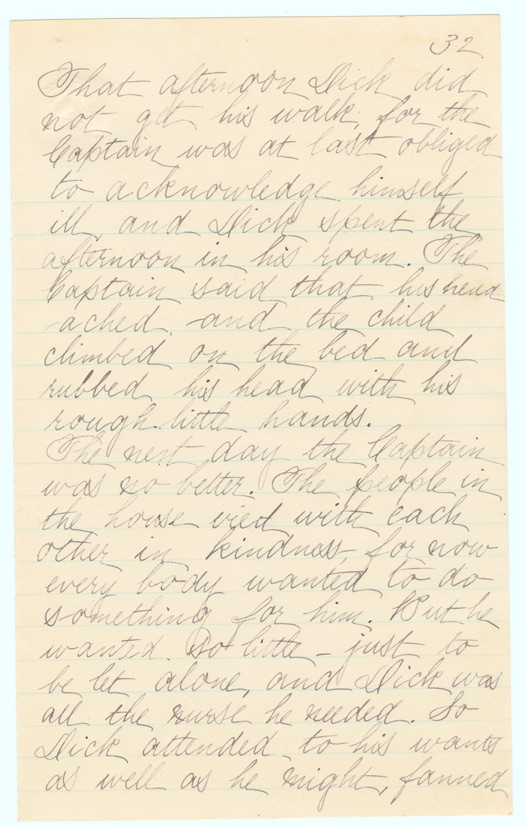 32
That afternoon Dick did
not get his walk, for the
Captain was at last obliged
to acknowledge himself
ill, and Dick spent the
afternoon in his room. The
Captain said that his head
ached, and the child
climbed on the bed and
rubbed his head with his
rough little hands.
The next day the Captain
was no better. The people in
the house vied with each
other in kindness, for now
every body wanted to do
something for him. But he
wanted so little - just to
be let alone, and Dick was
all the nurse he needed. So
Dick attended to his wants
as well as he might, fanned